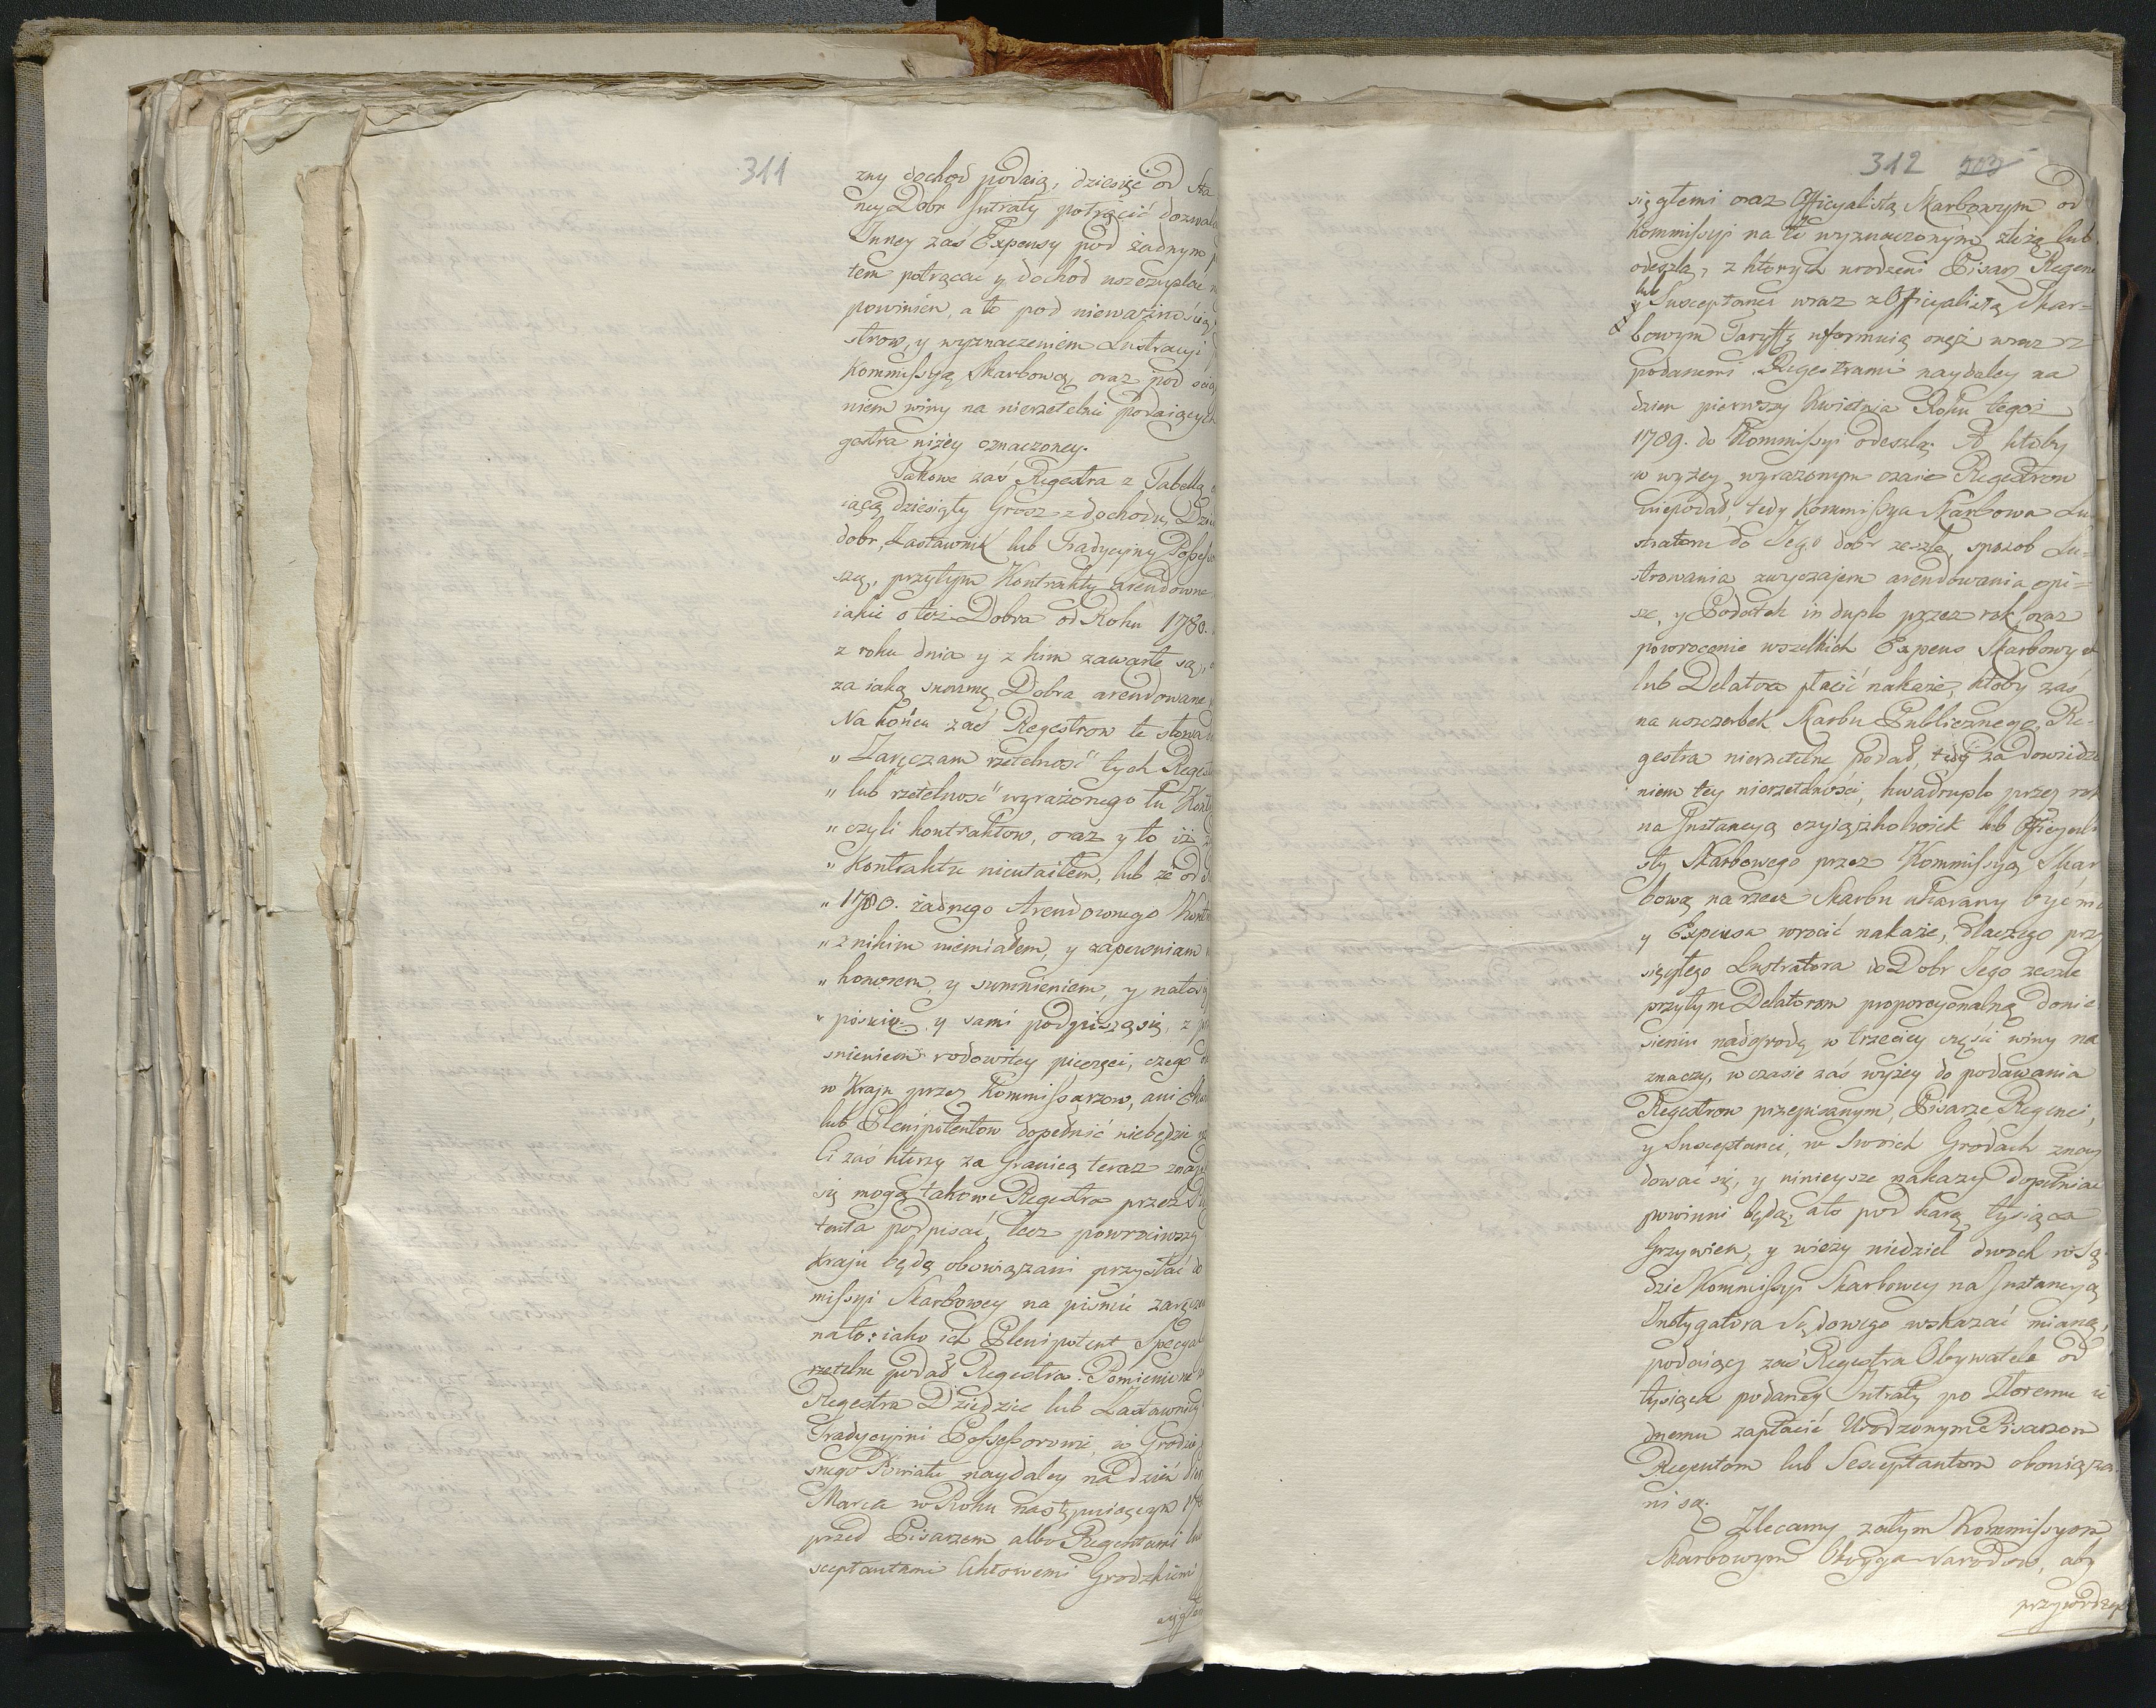 311
zny dochod podaią, dziesięć od sta
ney Dobr Intraty potrącić dozwala
Inney zaś Expensy pod żadnym
tem potrącać y dochod uszczuplać
powinien, a to pod nieważnością
strow, y wyznaczeniem Lustracyi
Kommissyą Skarbową, oraz pod ścią
niem winy na nierzetelnie podaiących
gestra niżey oznaczoney.
Takowe zaś Regestra z Tabellą
iącą dziesięty Grosz z dochodu, Dzie
dobr, Zastawnik lub Tradycyiny Possesso
szą, przytym Kontrakty arendowne
iakie o też Dobra od Roku 1780.
z roku dnia y z kim zawarte są,
za iaką summę Dobra arendowane
Na końcu zaś Regestrow te słowa
„ Zaręczam rzetelność tych Regest
„ lub rzetelność wyrażonego tu Kont
„ czyli kontraktow, oraz y to iż
„ Kontraktu nieutaiłem, lub że od
„ 1780. żadnego Arendownego Kont
„ z nikim niemiałem, y zapewniam
„ honorem, y sumnieniem, y nato
„ piszię y sami podpiszą się, z
śnieniem rodowitey pieczęci, czego
w Kraju przez Kommissarzow, ani
lub Plenipotentow dopełnić niebędzie
Ci zaś którzy za Granicą teraz znay
się mogą takowe Regestra przez
tenta podpisać, lecz powrociwszy
Kraju będą obowiązani przysłać do
missyi Skarbowey na pismie zaręczen
nato: iako ich Plenipotent Specyal
rzetelne podał Regestra. Pomienione
Regestra Dziedzic lub Zastawnicy
Tradycyini Possessorowie, w Grodzie
snego Powiatu naydaley na dzień
Marca w Roku następuiącym
przed Pisarzem albo Regentami lub
sceptantami Aktowemi Grodzkiemi
312
sięgłemi oraz Officyalistą Skarbowym od
Kommissyi na to wyznaczonym złożą lub
odeszlą, z których urodzeni Pisarz Regenc
lub
y Susceptanci wraz z Officyalistą Skar=
bowym Taryffę uformuią onęż wraz z
podanemi Regestrami naydaley na
dzien pierwszy Kwietnia Roku tegoż
1789. do Kommissyi odeszlą. A ktoby
w wyżey wyrażonym czasie Regestrow
niepodał, tedy Kommissya Skarbowa Lu-
stratora do Jego dobr ześle, sposob Lu=
strowania zwyczajem arendowania opi=
sze, y Podatek in duplo przez rok oraz
powrocenie wszelkich Expens Skarbowych
lub Delatora płacić nakaże, ktoby zaś
na uszczerbek Skarbu Publicznego Re-
gestra nierzetelne podał, tedy za dowiedze
niem tey nierzetelności, kwadruplo przez rok
na Instancyą czyiążkolwiek lub Officyali
sty Skarbowego przez Kommissyą Skar
bową na rzecz Skarbu ukarany być ma
y Expensa wrócić nakaże, dlaczego przy
sięgłego Lustratora do Dobr Jego ześle
przytym Delatorom proporcyonalną donie
sieniu nadgrodę w trzeciey części winy na
znaczy, w czasie zaś wyżey do podawania
Regestrow przepisanym, Pisarze Regenci,
y Susceptanci, w Swoich Grodach znay
dować się, y ninieysze nakazy dopełniać
powinni będą, ato pod karą tysiąca
Grzywien, y wieży niedziel dwoch w Są
dzie Kommissyi Skarbowey na Instancyą
Instygatora Sądowego wskazać mianą,
podaiący zaś Regestra Obywatele od
tysiąca podaney Intraty po Złotemu ie
dnemu zapłacić Urodzonym Pisarzom
Regentom lub Sesceptantom obowiąza-
ni są.
Zlecamy zatym Kommissyom
Skarbowym Oboyga Narodow, aby